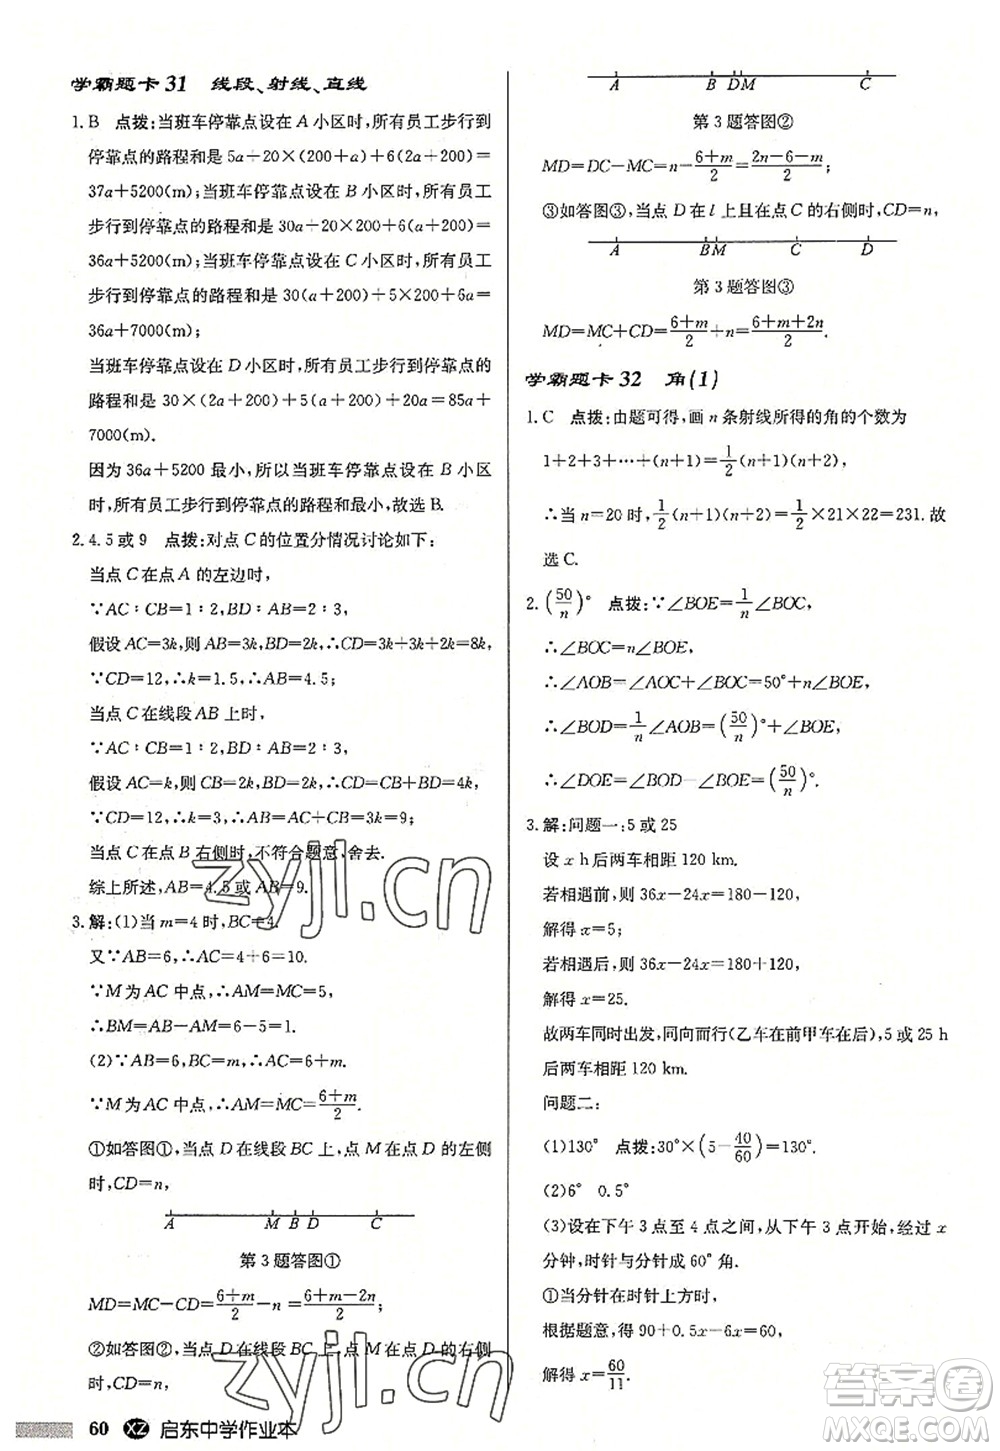 学霸题卡 31 线段、射线、直线
1. B 点拨:当班车停靠点设在 A 小区时,所有员工步行到
停靠点的路程和是 5a+20×(200+a)+6(2a+200)=
37a+5200(m);当班车停靠点设在 B 小区时,所有员工
步行到停靠点的路程和是 30a+20×200+6(a+200)=
36a+5200(m);当班车停靠点设在 C 小区时,所有员工
步行到停靠点的路程和是 30(a+200)+5×200+6a=
36a+7000(m);
当班车停靠点设在 D 小区时,所有员工步行到停靠点的
路程和是 30×(2a+200)+5(a+200)+20a=85a+
7000(m).
因为 36a+5200 最小,所以当班车停靠点设在 B 小区
时,所有员工步行到停靠点的路程和最小,故选 B.
2. 4.5 或 9 点拨:对点 C 的位置分情况讨论如下:
当点 C 在点 A 的左边时,
∵AC∶CB=1∶2,BD∶AB=2∶3,
假设 AC=3k,则 AB=3k,BD=2k,∴CD=3k+3k+2k=8k,
∵CD=12,∴k=1.5,∴AB=4.5;
当点 C 在线段 AB 上时,
∵AC∶CB=1∶2,BD∶AB=2∶3,
假设 AC=k,则 CB=2k,BD=2k,∴CD=CB+BD=4k,
∵CD=12,∴k=3,∴AB=AC+CB=3k=9;
当点 C 在点 B 右侧时,不符合题意,舍去.
综上所述,AB=4.5 或 AB=9.
3. 解:(1)当 m=4 时,BC=4.
又∵AB=6,∴AC=4+6=10.
∵M 为 AC 中点,∴AM=MC=5,
∴BM=AB-AM=6-5=1.
(2)∵AB=6,BC=m,∴AC=6+m,
∵M 为 AC 中点,∴AM=MC=\frac{6+m}{2}.
①如答图①,当点 D 在线段 BC 上,点 M 在点 D 的左侧
时,CD=n,
A M B D C
第 3 题答图①
MD=MC-CD=\frac{6+m}{2}-n=\frac{6+m-2n}{2};
②如答图②,当点 D 在线段 BC 上,点 M 在点 D 的右侧
时,CD=n,
60 XZ 启东中学作业本
A B D M C
第 3 题答图②
MD=DC-MC=n-\frac{6+m}{2}=\frac{2n-6-m}{2};
③如答图③,当点 D 在 l 上且在点 C 的右侧时,CD=n,
A B M C D
第 3 题答图③
MD=MC+CD=\frac{6+m}{2}+n=\frac{6+m+2n}{2}.
学霸题卡 32 角(1)
1. C 点拨:由题可得,画 n 条射线所得的角的个数为
1+2+3+…+(n+1)=\frac{1}{2}(n+1)(n+2),
∴当 n=20 时,\frac{1}{2}(n+1)(n+2)=\frac{1}{2}×21×22=231. 故
选 C.
2. (\frac{50}{n})° 点拨:∵∠BOE=\frac{1}{n}∠BOC,
∴∠BOC=n∠BOE,
∴∠AOB=∠AOC+∠BOC=50°+n∠BOE,
∴∠BOD=\frac{1}{n}∠AOB=(\frac{50}{n})°+∠BOE,
∴∠DOE=∠BOD-∠BOE=(\frac{50}{n})°.
3. 解:问题一:5 或 25
设 x h 后两车相距 120 km.
若相遇前,则 36x-24x=180-120,
解得 x=5;
若相遇后,则 36x-24x=180+120,
解得 x=25.
故两车同时出发,同向而行(乙车在前甲车在后),5 或 25 h
后两车相距 120 km.
问题二:
(1)130° 点拨:30°×(5-\frac{40}{60})=130°.
(2)6° 0.5°
(3)设在下午 3 点至 4 点之间,从下午 3 点开始,经过 x
分钟,时针与分针成 60° 角.
①当分针在时针上方时,
根据题意,得 90+0.5x-6x=60,
解得 x=\frac{60}{11}.
zyjl.cn
zyjl.cn
答案圈
MXQE.COM